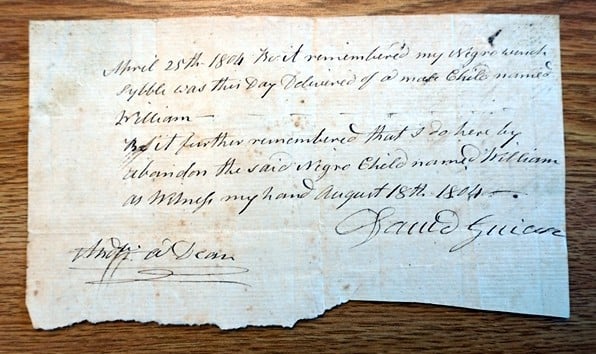 April 25th 1804 Be it remembered my Negro wench
Sybble was this Day Delivered of a male Child named
William —
Be it further remembered that I do here by
abandon the said Negro Child named William
as Witness my hand August 18th 1804 —
David
a Dean